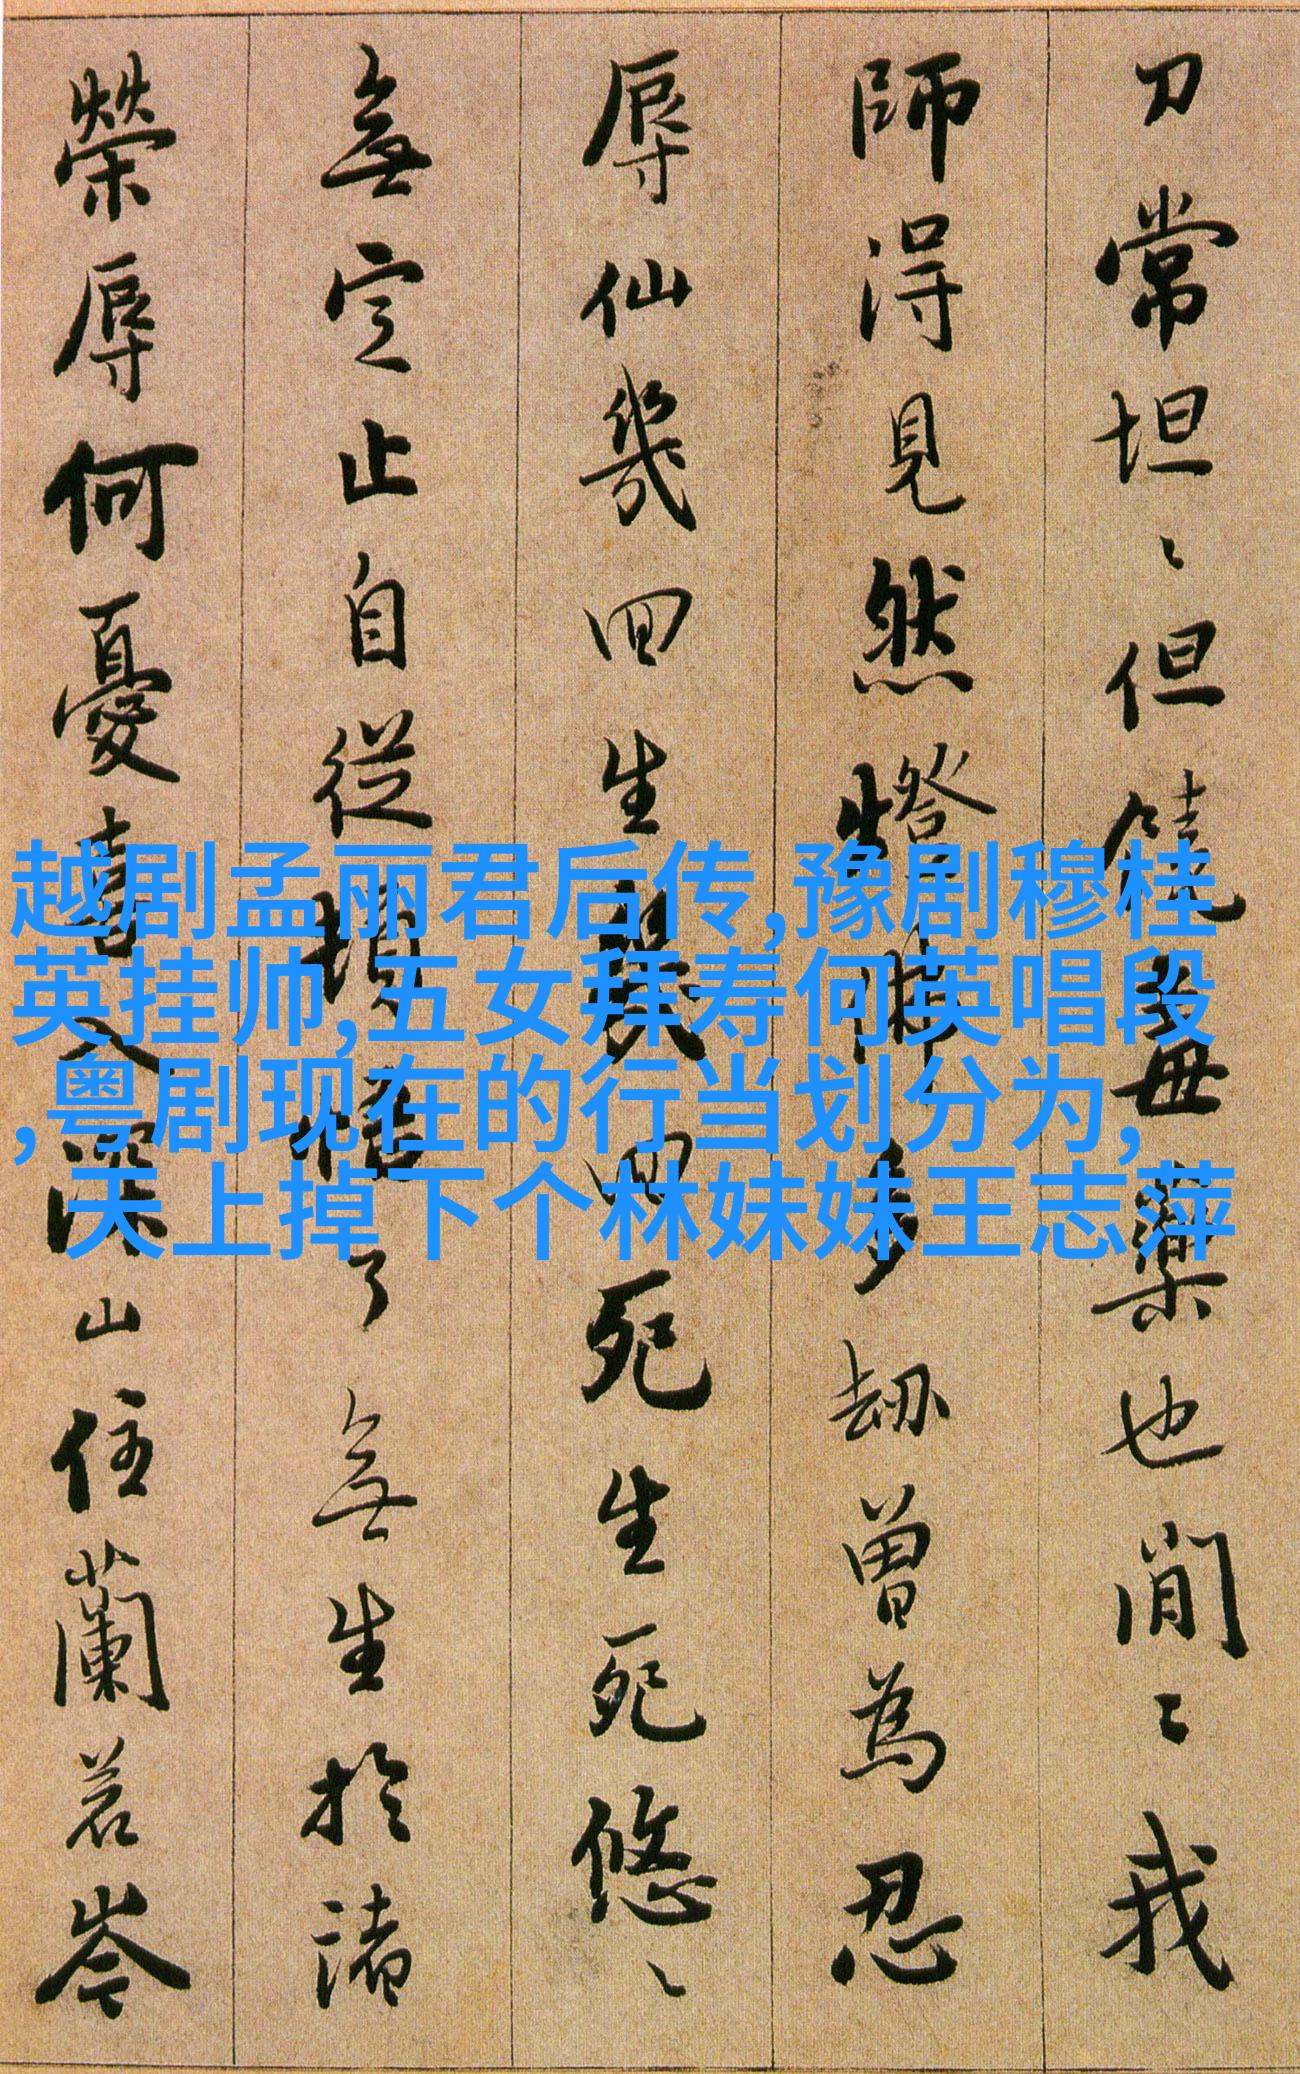 刀常坦々但饒毒藥也閒々我
師得見然燈佛多劫曾為忍
辱仙幾回生幾回死生死悠々
無定止自從頓悟了無生於諸
榮辱何憂喜入深山住蘭若岑
越剧孟丽君后传,豫剧穆桂
英挂帅,五女拜寿何英唱段
,粤剧现在的行当划分为,
天上掉下个林妹妹王志萍